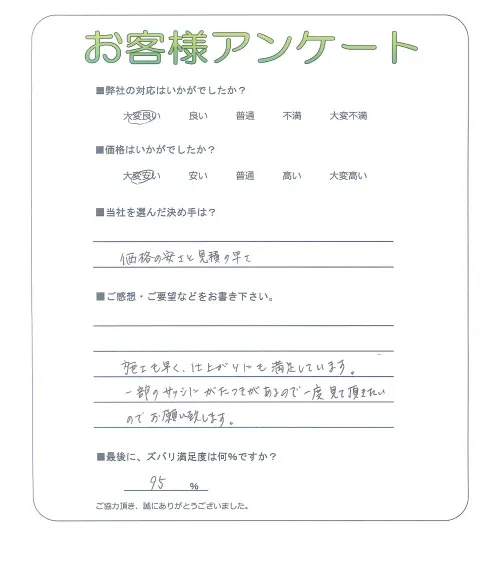 お客様アンケート
■弊社の対応はいかがでしたか？
大変良い 良い 普通 不満 大変不満
■価格はいかがでしたか？
大変安い 安い 普通 高い 大変高い
■当社を選んだ決め手は？
価格の安さと見積の早さ
■ご感想・ご要望などをお書き下さい。
施工も早く、仕上がりにも満足しています。
一部のサッシにがたつきがあるので一度見て頂きたい
のでお願い致します。
■最後に、ズバリ満足度は何%ですか？
95 %
ご協力頂き、誠にありがとうございました。